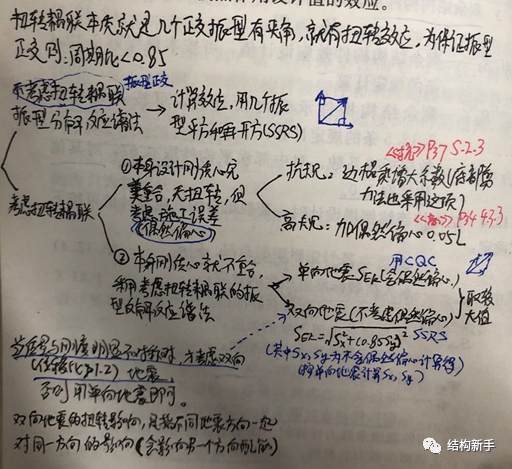 扭转耦联本质就是几个正交振型有夹角,就有扭转效应,为保证振型
正交 则:周期比<0.85
不考虑扭转耦联 振型正交
振型分解反应谱法
计算效应,用几个振
型平方和再开方(SSRS)
考虑扭转耦联
①本身设计刚质心完
美重合,无扭转,但
考虑施工误差
(偶然偏心)
《抗》P37 5.2.3
抗规:边榀乘增大系数(底部剪
力法也采用这项)
《高》P34 4.3.3
高规:加偶然偏心0.05L
②本身刚质心就不重合,
利用考虑扭转耦联的振
型分解反应谱法
用CQC
单向地震SEK(含偶然偏心)
双向地震(不考虑偶然偏心)
取较
大值
SEK=√Sx²+(0.85Sy)² SSRS
(其中Sx,Sy为不含偶然偏心计算得)
(按单向地震计算Sx,Sy)
当质量与刚度明显不对称时,才考虑双向
(位移比>1.2) 地震
否则用单向地震即可。
双向地震的扭转影响,是指不同地震方向一起
对同一方向的影响(会影响另一个方向配筋)
结构新手